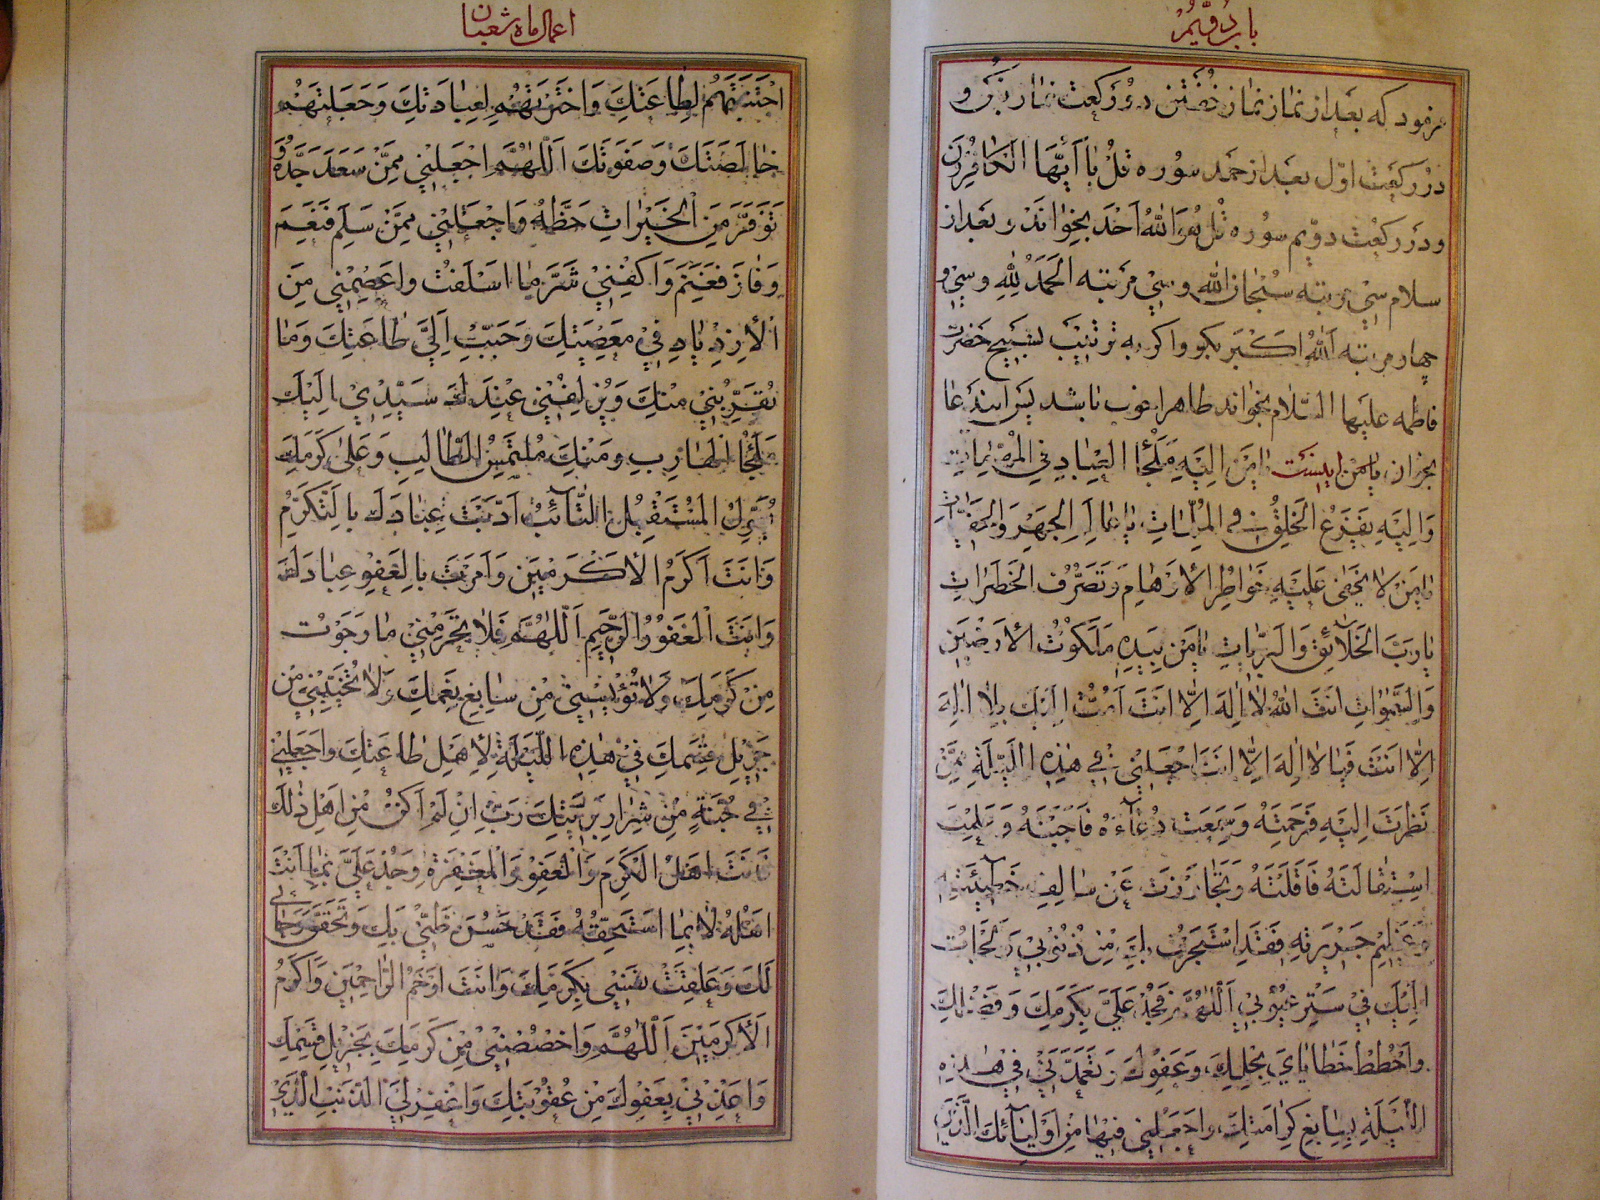 باب دویم
فرمود که بعد از نماز نماز خفتن دو رکعت نماز بکن و
در رکعت اول بعد از حمد سوره قُلْ یٰا اَیُّهَا الْکٰافِرُونَ
و در رکعت دویم سوره قُلْ هُوَ اللّٰهُ اَحَد بخواند و بعد از
سلام سی مرتبه سُبْحانَ اللّٰه و سی مرتبه الْحَمْدُ لِلّٰهِ و سی و
چهار مرتبه اَللّٰهُ اَکْبَر بگو و اکر به ترتیب تسبیح حضرت
فاطمه علیها السّلام بخواند ظاهرا خوب باشد پس این دعا
بخوان یٰا مَنْ اِلَیْهِ مَلْجَأُ الْعِبٰادِ فِی الْمُهِمّٰاتِ
وَاِلَیْهِ یَفْزَعُ الْخَلْقُ فِی الْمُلِمّٰاتِ یٰا عٰالِمَ الْجَهْرِ وَالْخَفِیّٰاتِ
یٰا مَنْ لاٰ یَخْفٰی عَلَیْهِ خَوٰاطِرُ الْاَوْهٰامِ وَتَصَرُّفُ الْخَطَرٰاتِ
یٰا رَبَّ الْخَلٰآئِقِ وَالْبَرِیّٰاتِ یٰا مَنْ بِیَدِهِ مَلَکُوتُ الْاَرَضینَ
وَالسَّمٰوٰاتِ اَنْتَ اللّٰهُ لاٰ اِلٰهَ اِلاّٰ اَنْتَ اَمُتُّ اِلَیْکَ بِلاٰ اِلٰهَ
اِلاّٰ اَنْتَ فَیٰا لاٰ اِلٰهَ اِلاّٰ اَنْتَ اجْعَلْنِی فِی هٰذِهِ اللَّیْلَةِ مِمَّنْ
نَظَرْتَ اِلَیْهِ فَرَحِمْتَهُ وَسَمِعْتَ دُعٰآءَهُ فَاَجَبْتَهُ وَعَلِمْتَ
اسْتِقٰالَتَهُ فَاَقَلْتَهُ وَتَجٰاوَزْتَ عَنْ سٰالِفِ خَطٖیئَتِهِ
وَعَظِیمِ جَرِیرَتِهِ فَقَدِ اسْتَجَرْتُ بِکَ مِنْ ذُنُوبِی وَلَجَأْتُ
اِلَیْکَ فِی سَتْرِ عُیُوبِی اَللّٰهُمَّ فَجُدْ عَلَیَّ بِکَرَمِکَ وَفَضْلِکَ
وَاحْطُطْ خَطٰایٰایَ بِحِلْمِکَ وَعَفْوِکَ وَتَغَمَّدْنِی فِی هٰذِهِ
اللَّیْلَةِ بِسٰابِغِ کَرٰامَتِکَ وَاجْعَلْنِی فِیهٰا مِنْ اَوْلِیٰآئِکَ الَّذِینَ
اعمال ماه شعبان
اجْتَبَیْتَهُمْ لِطٰاعَتِکَ وَاخْتَرْتَهُمْ لِعِبٰادَتِکَ وَجَعَلْتَهُمْ
خٰالِصَتَکَ وَصَفْوَتَکَ اَللّٰهُمَّ اجْعَلْنِی مِمَّنْ سَعَدَ جَدُّهُ وَ
تَوَفَّرَ مِنَ الْخَیْرٰاتِ حَظُّهُ وَاجْعَلْنِی مِمَّنْ سَلِمَ فَنَعِمَ
وَفٰازَ فَغَنِمَ وَاکْفِنِی شَرَّ مٰا اَسْلَفْتُ وَاعْصِمْنِی مِنَ
الْاِزْدِیٰادِ فِی مَعْصِیَتِکَ وَحَبِّبْ اِلَیَّ طٰاعَتَکَ وَمٰا
یُقَرِّبُنِی مِنْکَ وَیُزْلِفُنِی عِنْدَکَ سَیِّدِی اِلَیْکَ
مَلْجَأُ الْهٰارِبِ وَمِنْکَ مُلْتَمَسُ الطّٰالِبِ وَعَلٰی کَرَمِکَ
الْمُسْتَقْبِلُ التّٰآئِبُ اَدَّبْتَ عِبٰادَکَ بِالتَّکَرُّمِ
وَاَنْتَ اَکْرَمُ الْاَکْرَمِینَ وَاَمَرْتَ بِالْعَفْوِ عِبٰادَکَ
وَاَنْتَ الْغَفُورُ الرَّحِیم اَللّٰهُمَّ فَلاٰ تَحْرِمْنِی مٰا رَجَوْتُ
مِنْ کَرَمِکَ وَلاٰ تُؤْیِسْنِی مِنْ سٰابِغِ نِعَمِکَ وَلاٰ تُخَیِّبْنِی مِنْ
جَزِیلِ قِسَمِکَ فِی هٰذِهِ اللَّیْلَةِ لِاَهْلِ طٰاعَتِکَ وَاجْعَلْنِی
فِی جُنَّةٍ مِنْ شِرٰارِ بَرِیَّتِکَ رَبِّ اِنْ لَمْ اَکُنْ مِنْ اَهْلِ ذٰلِکَ
فَاَنْتَ اَهْلُ الْکَرَمِ وَالْعَفْوِ وَالْمَغْفِرَةِ وَجُدْ عَلَیَّ بِمٰا اَنْتَ
اَهْلُهُ لاٰ بِمٰا اَسْتَحِقُّهُ فَقَدْ حَسُنَ ظَنِّی بِکَ وَتَحَقَّقَ رَجٰائِی
لَکَ وَعَلِقَتْ نَفْسِی بِکَرَمِکَ وَاَنْتَ اَرْحَمُ الرّٰاحِمِینَ وَاَکْرَمُ
الْاَکْرَمِینَ اَللّٰهُمَّ وَاخْصُصْنِی مِنْ کَرَمِکَ بِجَزِیلِ قِسَمِکَ
وَاَعِذْنِی بِعَفْوِکَ مِنْ عُقُوبَتِکَ وَاغْفِرْ لِیَ الذَّنْبَ الَّذِی